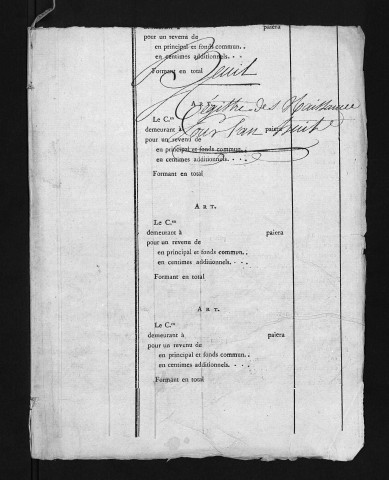 paiera
pour un revenu de
en principal et fonds commun. .
en centimes additionnels. . .
Formant en total
Art.
Régître des Naissance
Le C.en
pour l'an huit
demeurant à paiera
pour un revenu de
en principal et fonds commun. .
en centimes additionnels. . .
Formant en total
Art.
Le C.en
demeurant à paiera
pour un revenu de
en principal et fonds commun. .
en centimes additionnels. . .
Formant en total
Art.
Le C.en
demeurant à paiera
pour un revenu de
en principal et fonds commun. .
en centimes additionnels. . .
Formant en total